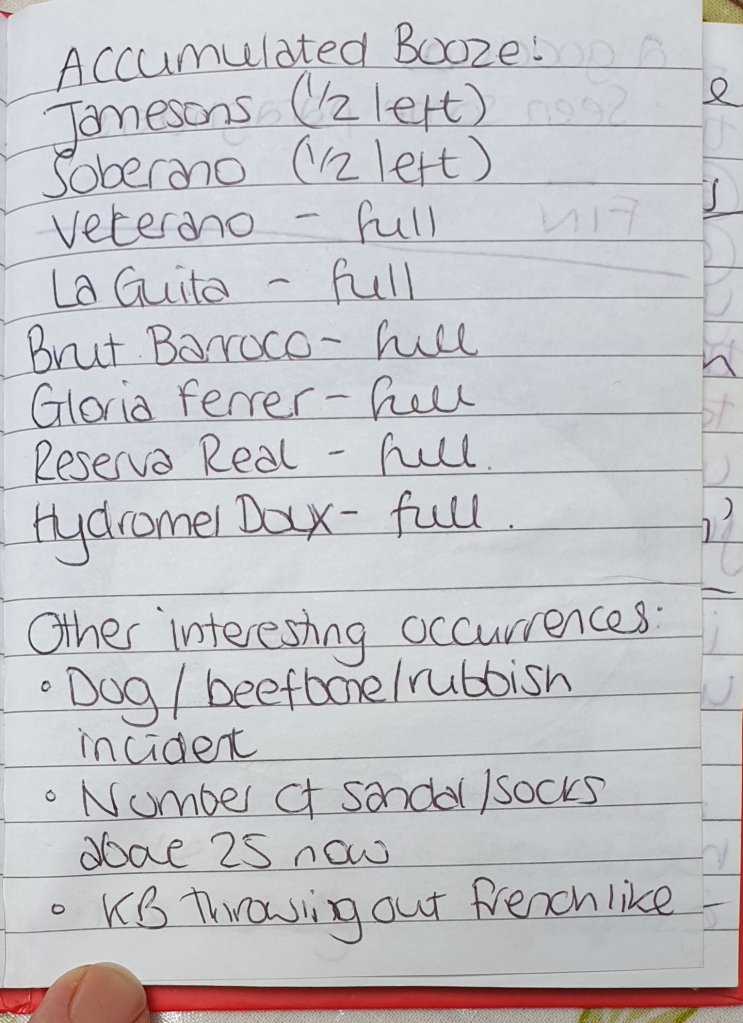 Accumulated Booze:
Jamesons (1/2 left)
Soberano (1/2 left)
Veterano - full
La Guita - full
Brut Barroco - full
Gloria Ferrer - full
Reserva Real - full.
Hydromel Doux - full.
Other interesting occurrences:
• Dog / beefbone / rubbish
incident
• Number of sandal / socks
above 25 now
• KB throwing out french like
FIN